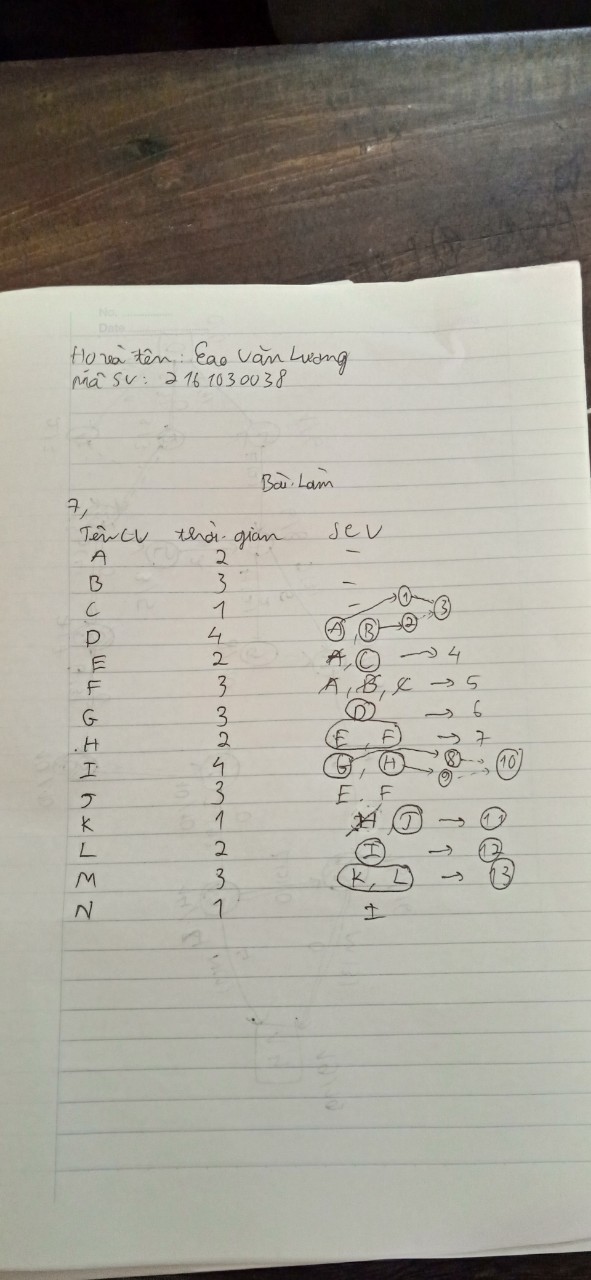 No.
Date
Họ và tên: Cao Văn Lương
mã SV: 2161030038
Bài Làm
7,
Tên CV thời gian SCV
A 2 -
B 3 -
C 1 - 1 3
D 4 A, B → 2
E 2 A, C → 4
F 3 A, B, C → 5
G 3 D → 6
H 2 E, F → 7
I 4 G, H 8 9 10
J 3 E, F
K 1 H, J → 11
L 2 I → 12
M 3 K, L → 13
N 1 I